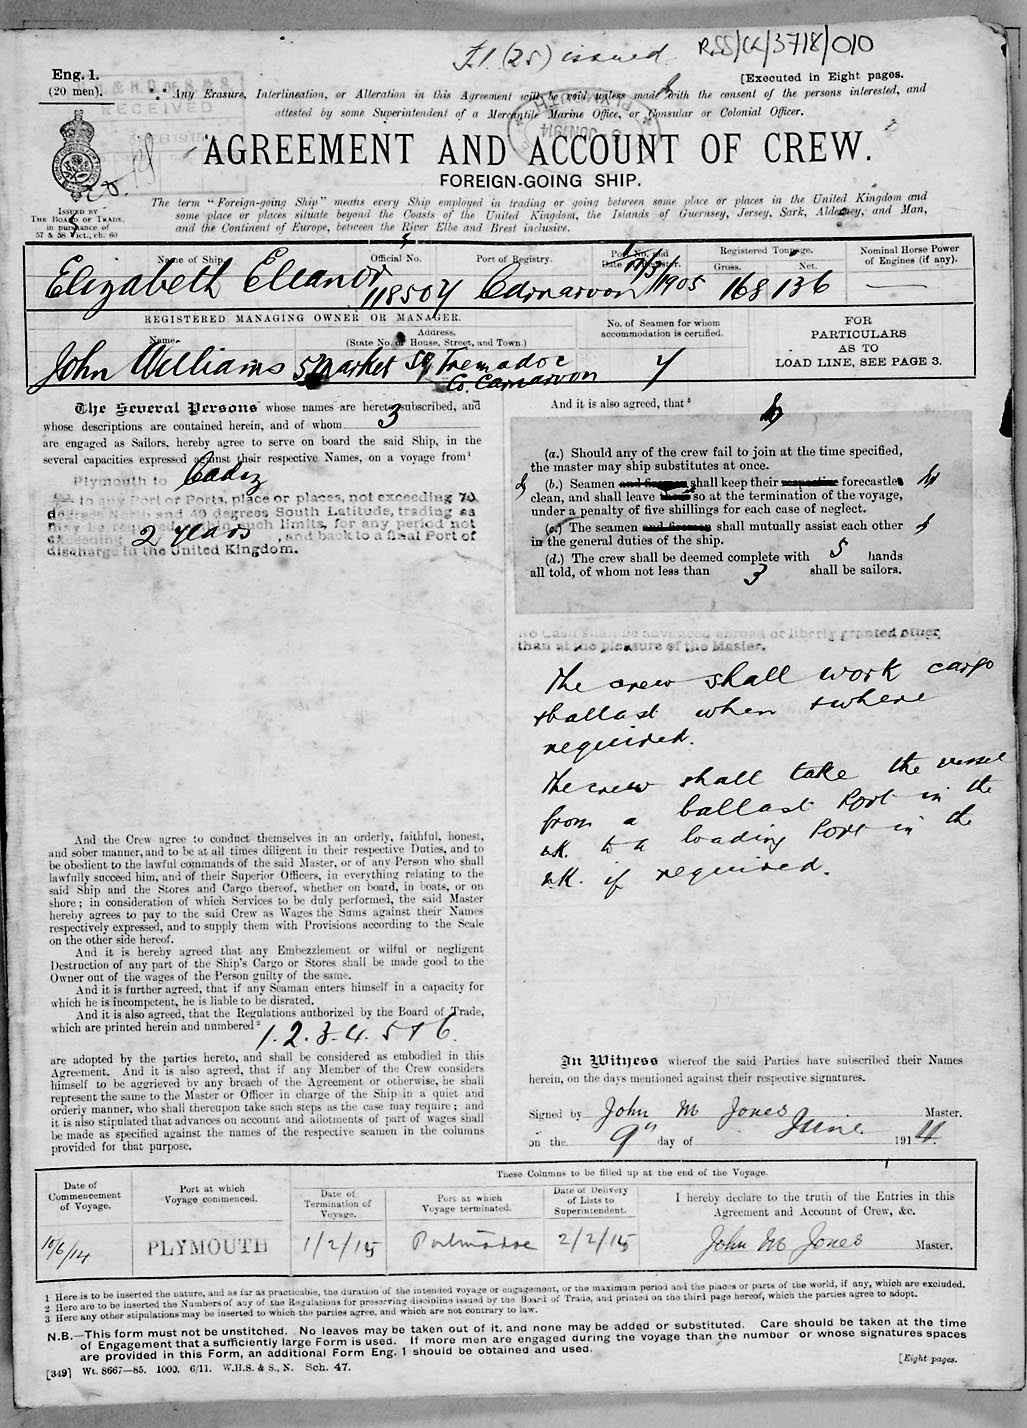 F.1. (25) issued RSS/CL/3718/010
Eng. 1.
(20 men).
[Executed in Eight pages.
RECEIVED
Any Erasure, Interlineation, or Alteration in this Agreement will be void unless made with the consent of the persons interested, and
attested by some Superintendent of a Mercantile Marine Office, or Consular or Colonial Officer.
AGREEMENT AND ACCOUNT OF CREW.
FOREIGN-GOING SHIP.
ISSUED BY
THE BOARD OF TRADE,
in pursuance of
57 & 58 Vict., ch. 60
The term "Foreign-going Ship" means every Ship employed in trading or going between some place or places in the United Kingdom and
some place or places situate beyond the Coasts of the United Kingdom, the Islands of Guernsey, Jersey, Sark, Alderney, and Man,
and the Continent of Europe, between the River Elbe and Brest inclusive.
Name of Ship. Official No. Port of Registry. Port No. and Date of Register. Registered Tonnage. Gross. Net. Nominal Horse Power of Engines (if any).
Elizabeth Eleanor 118504 Carnarvon 11/3/1905 168 136 —
REGISTERED MANAGING OWNER OR MANAGER.
Name. Address. (State No. of House, Street, and Town.)
No. of Seamen for whom accommodation is certified.
FOR
PARTICULARS
AS TO
LOAD LINE, SEE PAGE 3.
John Williams 5 Market Sq Tremadoc 7
Co. Carnarvon
The Several Persons whose names are hereto subscribed, and
whose descriptions are contained herein, and of whom 3
are engaged as Sailors, hereby agree to serve on board the said Ship, in the
several capacities expressed against their respective Names, on a voyage from¹
Plymouth to Cadiz
to any Port or Ports, place or places, not exceeding 70
degrees North and 40 degrees South Latitude, trading as
may be required within such limits, for any period not
exceeding 2 years, and back to a final Port of
discharge in the United Kingdom.
And the Crew agree to conduct themselves in an orderly, faithful, honest,
and sober manner, and to be at all times diligent in their respective Duties, and to
be obedient to the lawful commands of the said Master, or of any Person who shall
lawfully succeed him, and of their Superior Officers, in everything relating to the
said Ship and the Stores and Cargo thereof, whether on board, in boats, or on
shore; in consideration of which Services to be duly performed, the said Master
hereby agrees to pay to the said Crew as Wages the Sums against their Names
respectively expressed, and to supply them with Provisions according to the Scale
on the other side hereof.
And it is hereby agreed that any Embezzlement or wilful or negligent
Destruction of any part of the Ship's Cargo or Stores shall be made good to the
Owner out of the wages of the Person guilty of the same.
And it is further agreed, that if any Seaman enters himself in a capacity for
which he is incompetent, he is liable to be disrated.
And it is also agreed, that the Regulations authorized by the Board of Trade,
which are printed herein and numbered² 1. 2. 3. 4. 5 + 6.
are adopted by the parties hereto, and shall be considered as embodied in this
Agreement. And it is also agreed, that if any Member of the Crew considers
himself to be aggrieved by any breach of the Agreement or otherwise, he shall
represent the same to the Master or Officer in charge of the Ship in a quiet and
orderly manner, who shall thereupon take such steps as the case may require; and
it is also stipulated that advances on account and allotments of part of wages shall
be made as specified against the names of the respective seamen in the columns
provided for that purpose.
And it is also agreed, that³
(a.) Should any of the crew fail to join at the time specified,
the master may ship substitutes at once.
(b.) Seamen and firemen shall keep their respective forecastles
clean, and shall leave them so at the termination of the voyage,
under a penalty of five shillings for each case of neglect.
(c.) The seamen and firemen shall mutually assist each other
in the general duties of the ship.
(d.) The crew shall be deemed complete with 5 hands
all told, of whom not less than 3 shall be sailors.
No Cash shall be advanced abroad or liberty granted other
than at the pleasure of the Master.
The crew shall work cargo
+ ballast when + where
required.
The crew shall take the vessel
from a ballast Port in the
uK. to a loading Port in the
uK. if required.
In Witness whereof the said Parties have subscribed their Names
herein, on the days mentioned against their respective signatures.
Signed by John M Jones Master.
on the 9" day of June 1914.
These Columns to be filled up at the end of the Voyage.
Date of Commencement of Voyage. Port at which Voyage commenced. Date of Termination of Voyage. Port at which Voyage terminated. Date of Delivery of Lists to Superintendent. I hereby declare to the truth of the Entries in this Agreement and Account of Crew, &c.
10/6/14 PLYMOUTH 1/2/15 Portmadoc 2/2/15 John M Jones Master.
1 Here is to be inserted the nature, and as far as practicable, the duration of the intended voyage or engagement, or the maximum period and the places or parts of the world, if any, which are excluded.
2 Here are to be inserted the Numbers of any of the Regulations for preserving discipline issued by the Board of Trade, and printed on the third page hereof, which the parties agree to adopt.
3 Here any other stipulations may be inserted to which the parties agree, and which are not contrary to law.
N.B.—This form must not be unstitched. No leaves may be taken out of it, and none may be added or substituted. Care should be taken at the time
of Engagement that a sufficiently large Form is used. If more men are engaged during the voyage than the number or whose signatures spaces
are provided in this Form, an additional Form Eng. 1 should be obtained and used.
[349] Wt. 8667—85. 1000. 6/11. W.H.S. & S., N. Sch. 47.
[Eight pages.